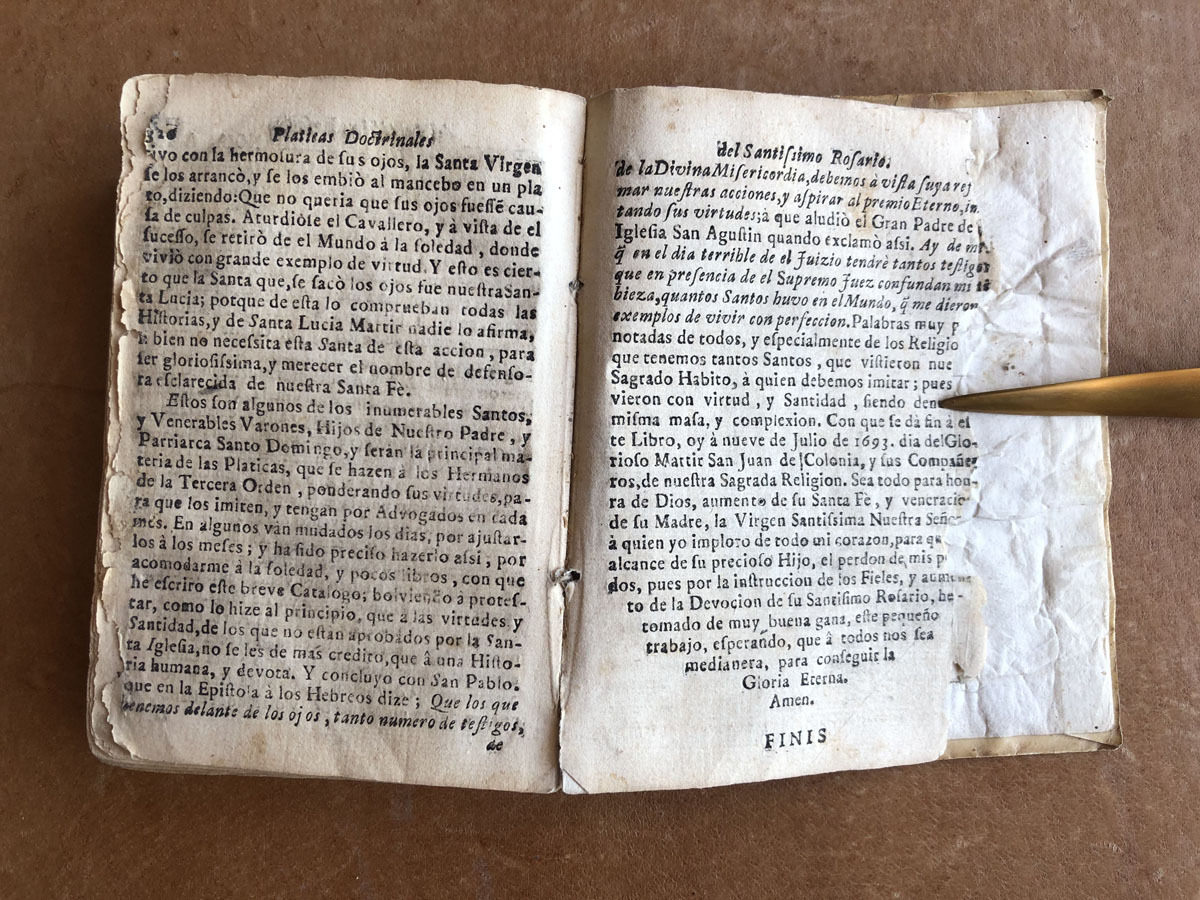 Platicas Doctrinales
uvo con la hermosura de sus ojos, la Santa Virgen
se los arrancò, y se los embiò al mancebo en un pla
to, diziendo: Que no queria que sus ojos fuessẽ cau-
sa de culpas. Aturdiòse el Cavallero, y à vista de el
sucesso, se retirò de el Mundo à la soledad, donde
viviò con grande exemplo de virtud. Y esto es cier-
to que la Santa que, se sacò los ojos fue nuestra San-
ta Lucia; porque de esta lo comprueban todas las
Historias, y de Santa Lucia Martir nadie lo afirma,
si bien no necessita esta Santa de esta accion, para
ser gloriosissima, y merecer el nombre de defenso-
ra esclarecida de nuestra Santa Fè.
Estos son algunos de los inumerables Santos,
y Venerables Varones, Hijos de Nuestro Padre, y
Patriarca Santo Domingo, y seràn la principal ma-
teria de las Platicas, que se hazen à los Hermanos
de la Tercera Orden, ponderando sus virtudes, pa-
ra que los imiten, y tengan por Advogados en cada
mes. En algunos van mudados los dias, por ajustar-
los à los meses; y ha sido preciso hazerlo assi, por
acomodarme à la soledad, y pocos libros, con que
he escrito este breve Catalogo; bolviendo à protes-
tar, como lo hize al principio, que à las virtudes y
Santidad, de los que no estan aprobados por la San-
ta Iglesia, no se les dè mas credito, que â una Histo-
ria humana, y devota. Y concluyo con San Pablo.
que en la Epistola à los Hebreos dize; Que los que
tenemos delante de los ojos, tanto numero de testigos,
de
del Santissimo Rosario.
de la Divina Misericordia, debemos à vista suya ref
mar nuestras acciones, y aspirar al premio Eterno, im
tando sus virtudes; à que aludiò el Gran Padre de
Iglesia San Agustin quando exclamò assi. Ay de mi
q̃ en el dia terrible de el Juizio tendrè tantos testigos
que en presencia de el Supremo Juez confundan mi ti
bieza, quantos Santos huvo en el Mundo, q̃ me dieron
exemplos de vivir con perfeccion. Palabras muy p
notadas de todos, y especialmente de los Religio
que tenemos tantos Santos, que vistieron nue
Sagrado Habito, à quien debemos imitar; pues
vieron con virtud, y Santidad, siendo de
misma masa, y complexion. Con que se dà fin à es
te Libro, oy à nueve de Julio de 1693. dia del Glo-
rioso Martir San Juan de Colonia, y sus Compañe
ros, de nuestra Sagrada Religion. Sea todo para hon-
ra de Dios, aumento de su Santa Fè, y veneracio
de su Madre, la Virgen Santissima Nuestra Señor
à quien yo imploro de todo mi corazon, para q
alcance de su precioso Hijo, el perdon de mis p
dos, pues por la instruccion de los Fieles, y aumen
to de la Devocion de su Santisimo Rosario, he
tomado de muy buena gana, este pequeño
trabajo, esperando, que â todos nos sea
medianera, para conseguir la
Gloria Eterna.
Amen.
FINIS